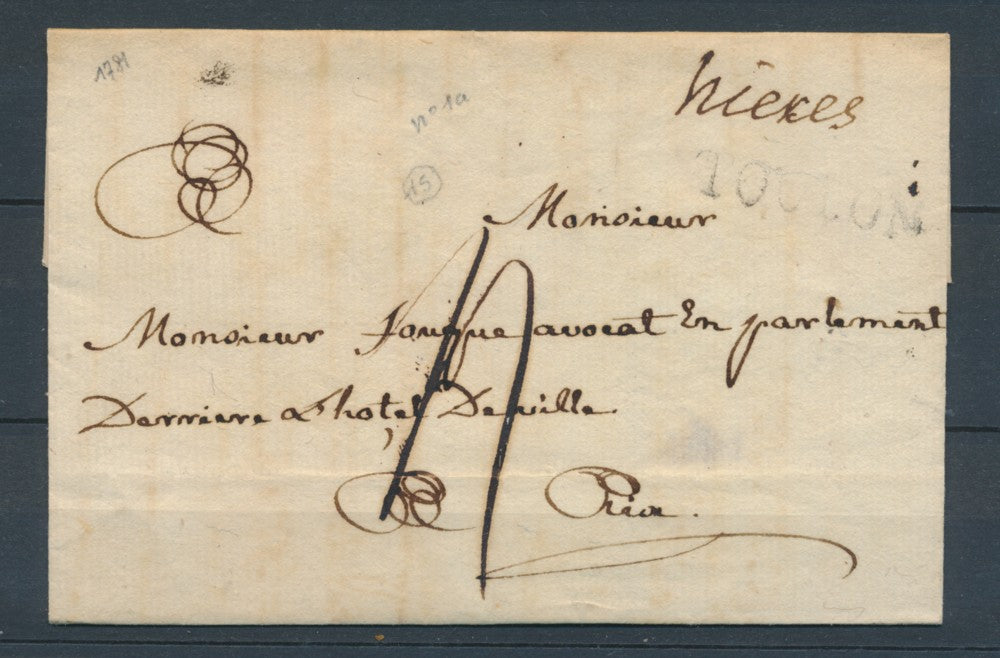 1781
hieres
n° 1a
15
TOULON
Monsieur
Monsieur Jouque avocat En parlement
Derriere a L'hotel De ville
A Aix.